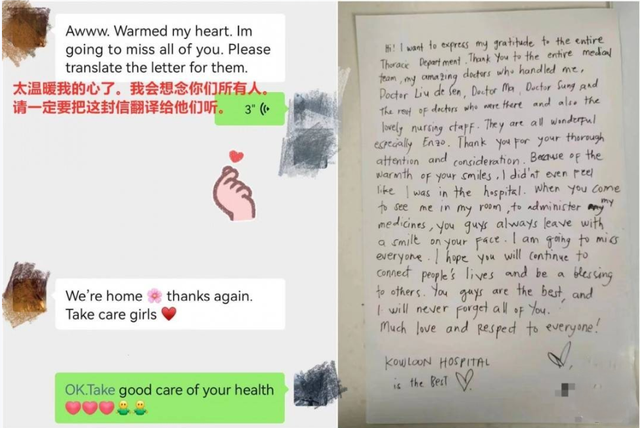 Awww. Warmed my heart. Im
going to miss all of you. Please
translate the letter for them.
太温暖我的心了。我会想念你们所有人。
请一定要把这封信翻译给他们听。
3"
We're home 🌸 thanks again.
Take care girls ❤️
OK.Take good care of your health
Hi! I want to express my gratitude to the entire
Thorack Department. Thank you to the entire medical
team, my amazing doctors who handled me,
Doctor Liu de Sen, Doctor Ma, Doctor Sung and
The rest of doctors who were there and also the
lovely nursing staff. They are all wonderful
especially Enzo. Thank you for your thorough
attention and consideration. Because of the
warmth of your smiles, I did'nt even feel
like I was in the hospital. When you come
to see me in my room, to administer my
medicines, you guys always leave with
a smile on your face. I am going to miss
everyone. I hope you will continue to
connect people's lives and be a blessing
to others. You guys are the best, and
I will never forget all of You.
Much love and respect to everyone!
KOWLOON HOSPITAL
is the Best